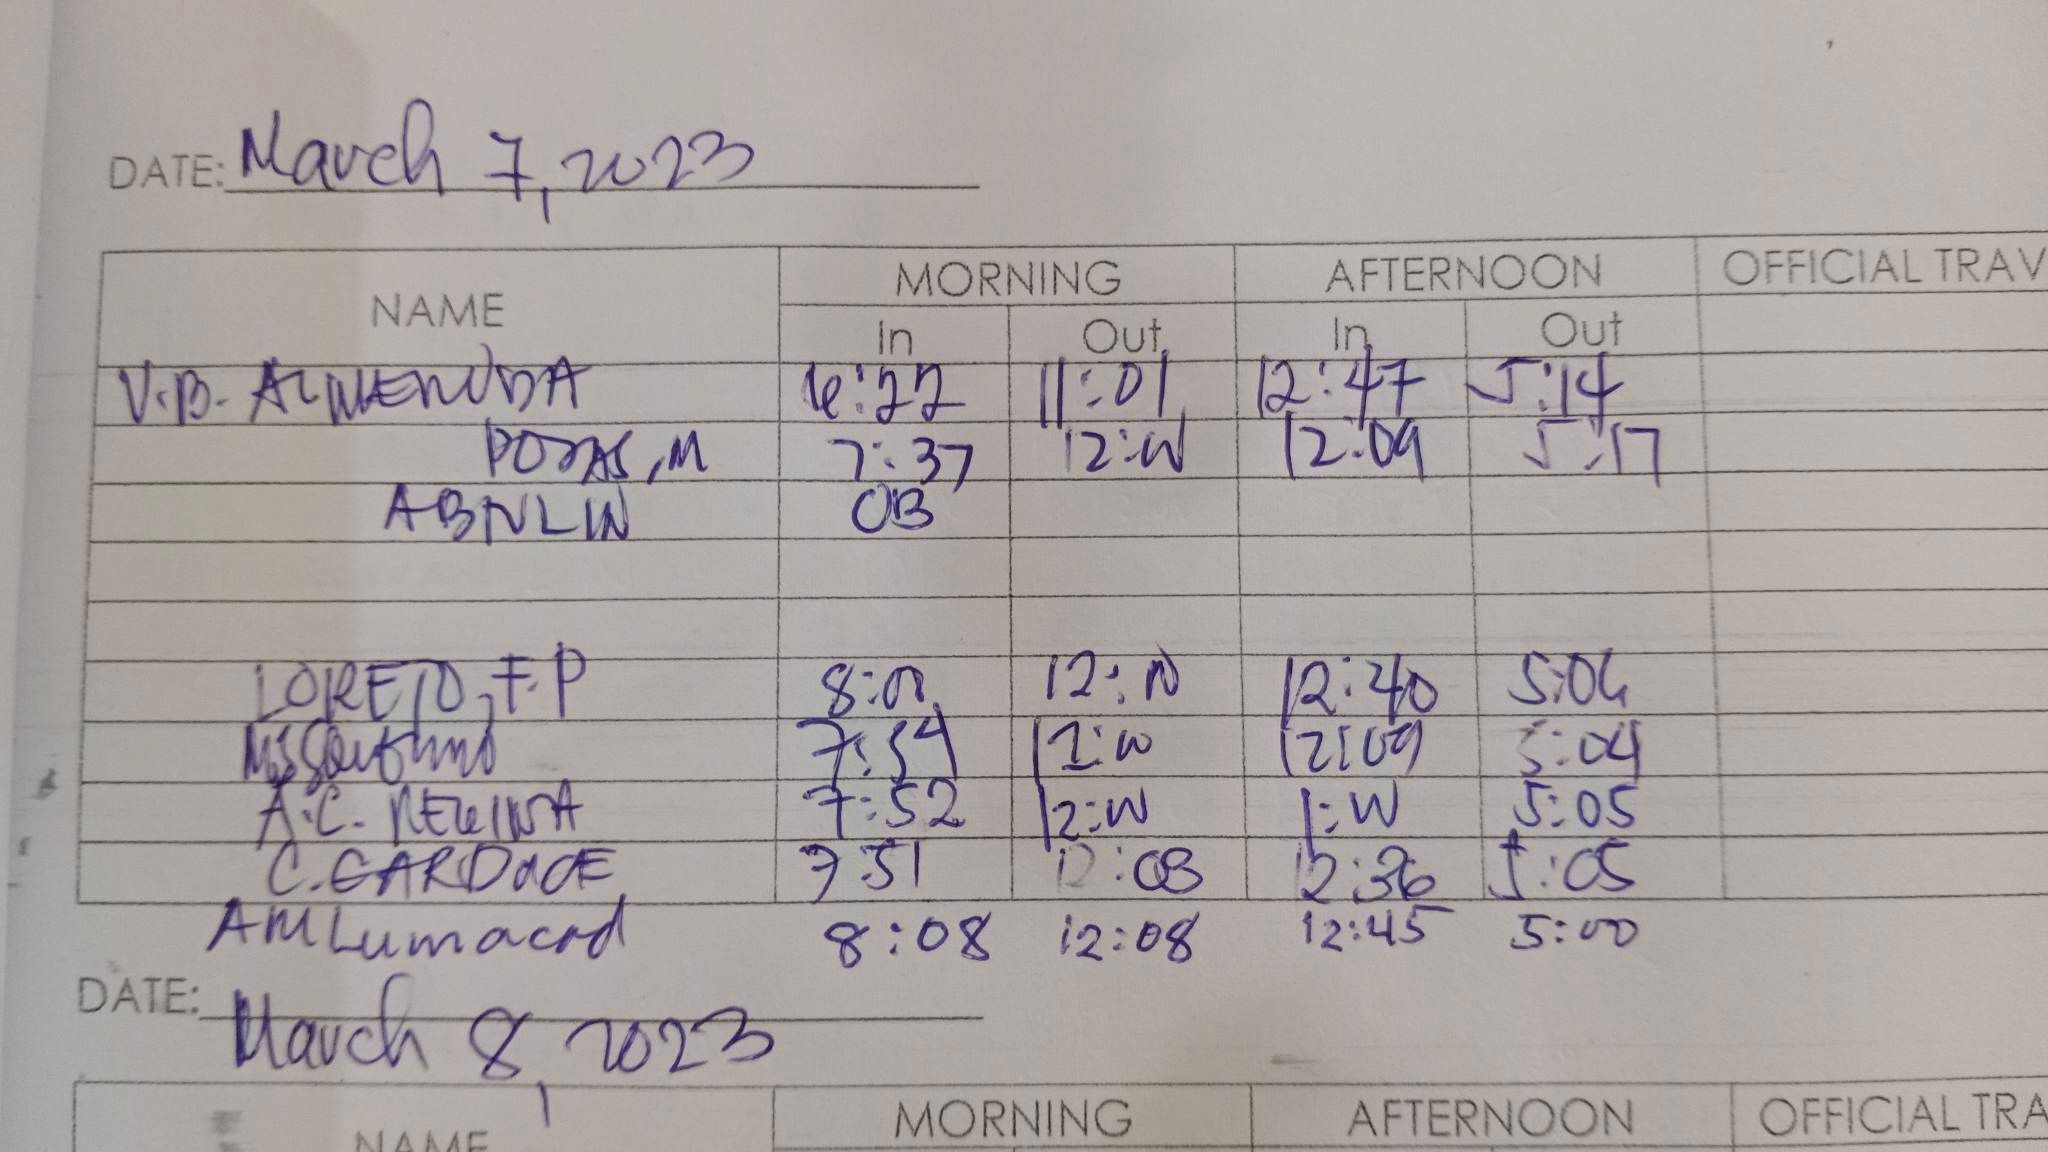 DATE: March 7, 2023
NAME MORNING AFTERNOON OFFICIAL TRAV
In Out In Out
V.B. ALMENDRA 6:22 11:01 12:47 5:14
M 7:37 12:W 12:09 5:17
OB
LORETO, F.P 8:00 12:N 12:40 5:04
7:54 12:W 12:09 5:04
A.C. 7:52 12:W 1:W 5:05
C. 7:51 12:03 12:36 5:05
AM Lumacad 8:08 12:08 12:45 5:00
DATE: March 8, 2023
NAME MORNING AFTERNOON OFFICIAL TRA